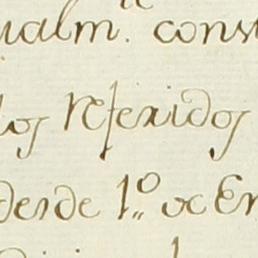 ualm. const
los referidos
desde 1º. de En